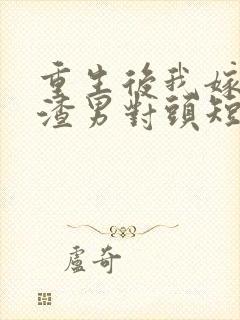 重生後我嫁
渣男對頭短
盧奇